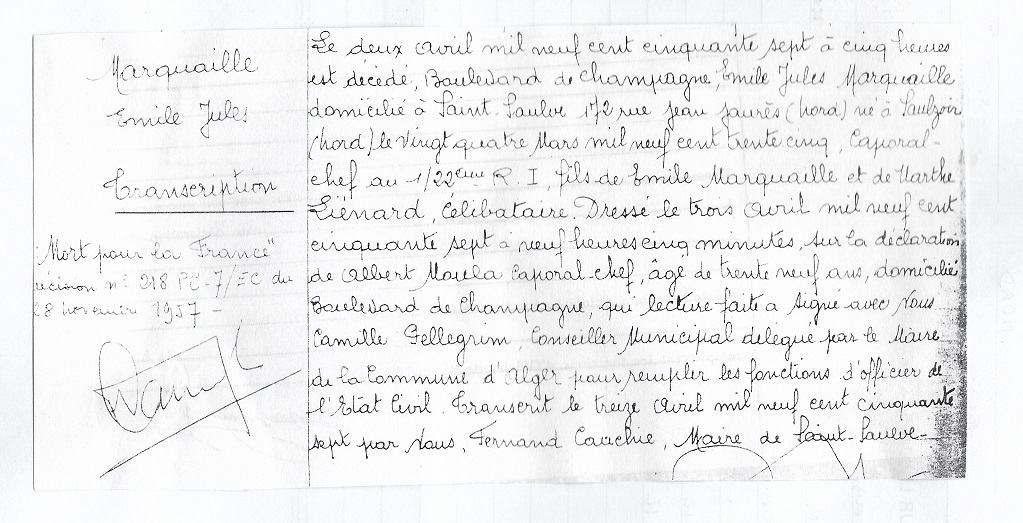 Marquaille
Emile Jules
Transcription
"Mort pour la France"
décision n° 218 PC-7/EC du
28 novembre 1957 -
Le deux Avril mil neuf cent cinquante sept à cinq heures
est décédé, Boulevard de Champagne, Emile Jules Marquaille
domicilié à Saint-Saulve 172 rue Jean Jaurès (Nord) né à Saulzoir
(Nord) le Vingt quatre Mars mil neuf cent trente cinq, Caporal-
chef au 1/22ème R.I, fils de Emile Marquaille et de Marthe
Liénard, Célibataire. Dressé le trois Avril mil neuf cent
cinquante sept à neuf heures cinq minutes, sur la déclaration
de Albert Mouela Caporal-chef, âgé de trente neuf ans, domicilié
Boulevard de Champagne, qui lecture faite a signé avec Nous
Camille Pellegrim, Conseiller Municipal délégué par le Maire
de la Commune d'Alger pour remplir les fonctions d'officier de
l'Etat Civil. Transcrit le treize Avril mil neuf cent cinquante
sept par Nous, Fernand Cauchie, Maire de Saint-Saulve-